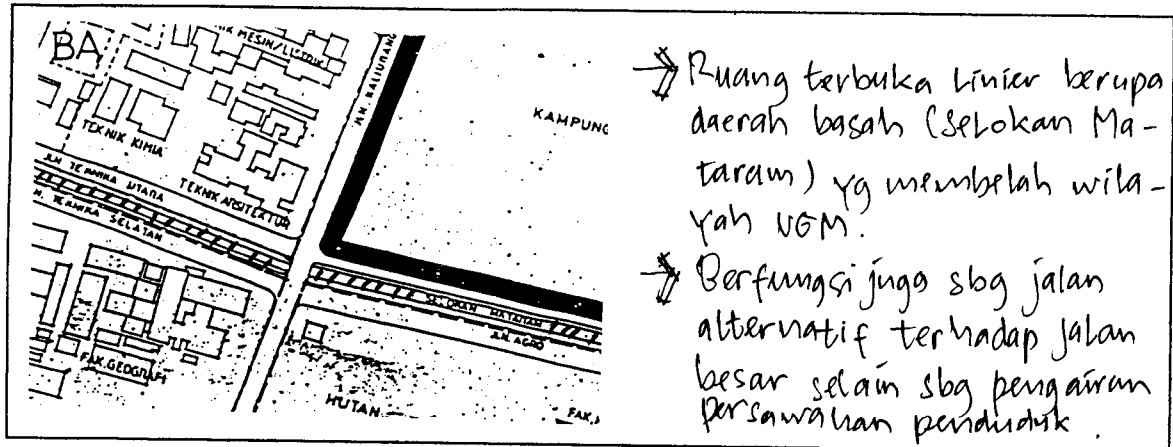 BA
MESIN/LISTRIK
JLN. KALIURANG
KAMPUNG
TEKNIK KIMIA
JLN TEKNIKA UTARA
TEKNIK ARSITEKTUR
TEKNIKA SELATAN
SELOKAN MATARAM
JLN. AGRO
FAK. GEOGRAFI
HUTAN
FAK.
→ Ruang terbuka Linier berupa
daerah basah (Selokan Ma-
taram) yg membelah wila-
yah UGM.
→ Berfungsi juga sbg jalan
alternatif terhadap jalan
besar selain sbg pengairan
persawahan penduduk.